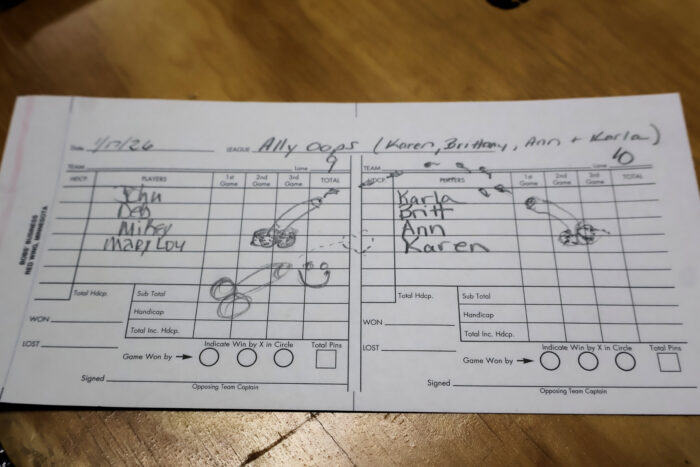 Date 1/17/26 LEAGUE Ally Oops (Karen, Brittany, Ann + Karla)
TEAM Lane 9
HDCP. PLAYERS 1st Game 2nd Game 3rd Game TOTAL
John
Deb
Mikey
Mary Lou
Total Hdcp. Sub Total
Handicap
Total Inc. Hdcp.
WON
LOST
Indicate Win by X in Circle Total Pins
Game Won by
Signed
Opposing Team Captain
TEAM Lane 10
HDCP. PLAYERS 1st Game 2nd Game 3rd Game TOTAL
Karla
Britt
Ann
Karen
Total Hdcp. Sub Total
Handicap
Total Inc. Hdcp.
WON
LOST
Indicate Win by X in Circle Total Pins
Game Won by
Signed
Opposing Team Captain
BUSINESS
RED WING, MINNESOTA